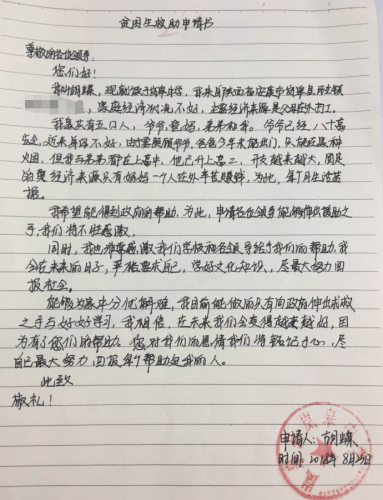 贫困生救助申请书
尊敬的各位领导:
您们好!
我叫胡蝶,现就读于岚皋中学,我来自陕西省安康市岚皋县民主镇
,家庭经济状况不好,主要经济来源是父母在外打工。
我家共有五口人,爷爷,爸妈,弟弟和我。爷爷已经八十高
龄,近来身体不好,由爸爸照顾爷爷,爸爸今年才能出门,只能在家种
火田,但我与弟弟都在上高中,他已升上高二,开支越来越大,固定
的经济来源只有妈妈一个人在外辛苦赚钱,为此,每个月生活
紧。
我希望能得到政府的帮助,为此,申请各位领导能够伸出援助之
手,我们将不胜感激。
同时,我也非常感激我们学校和各领导给予我们的帮助,我
会在未来的日子,严格要求自己,学好文化知识,尽最大努力回
报社会。
能够为家中分忧解难,我目前能做的只有向政府伸出求救
之手与好好学习,我相信,在未来我们会变得越来越好,因
为有了您们的帮助。您对我们的恩情我们将铭记于心,尽
自己最大努力回报每个帮助过我的人。
此致
敬礼!
申请人:胡蝶
时间:2018年8月25日